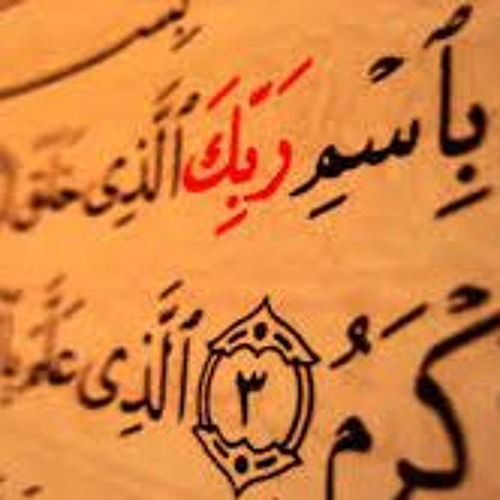 بِٱسْمِ رَبِّكَ ٱلَّذِى خَلَقَ
كْرَمُ ٣ ٱلَّذِى عَلَّمَ بِٱ